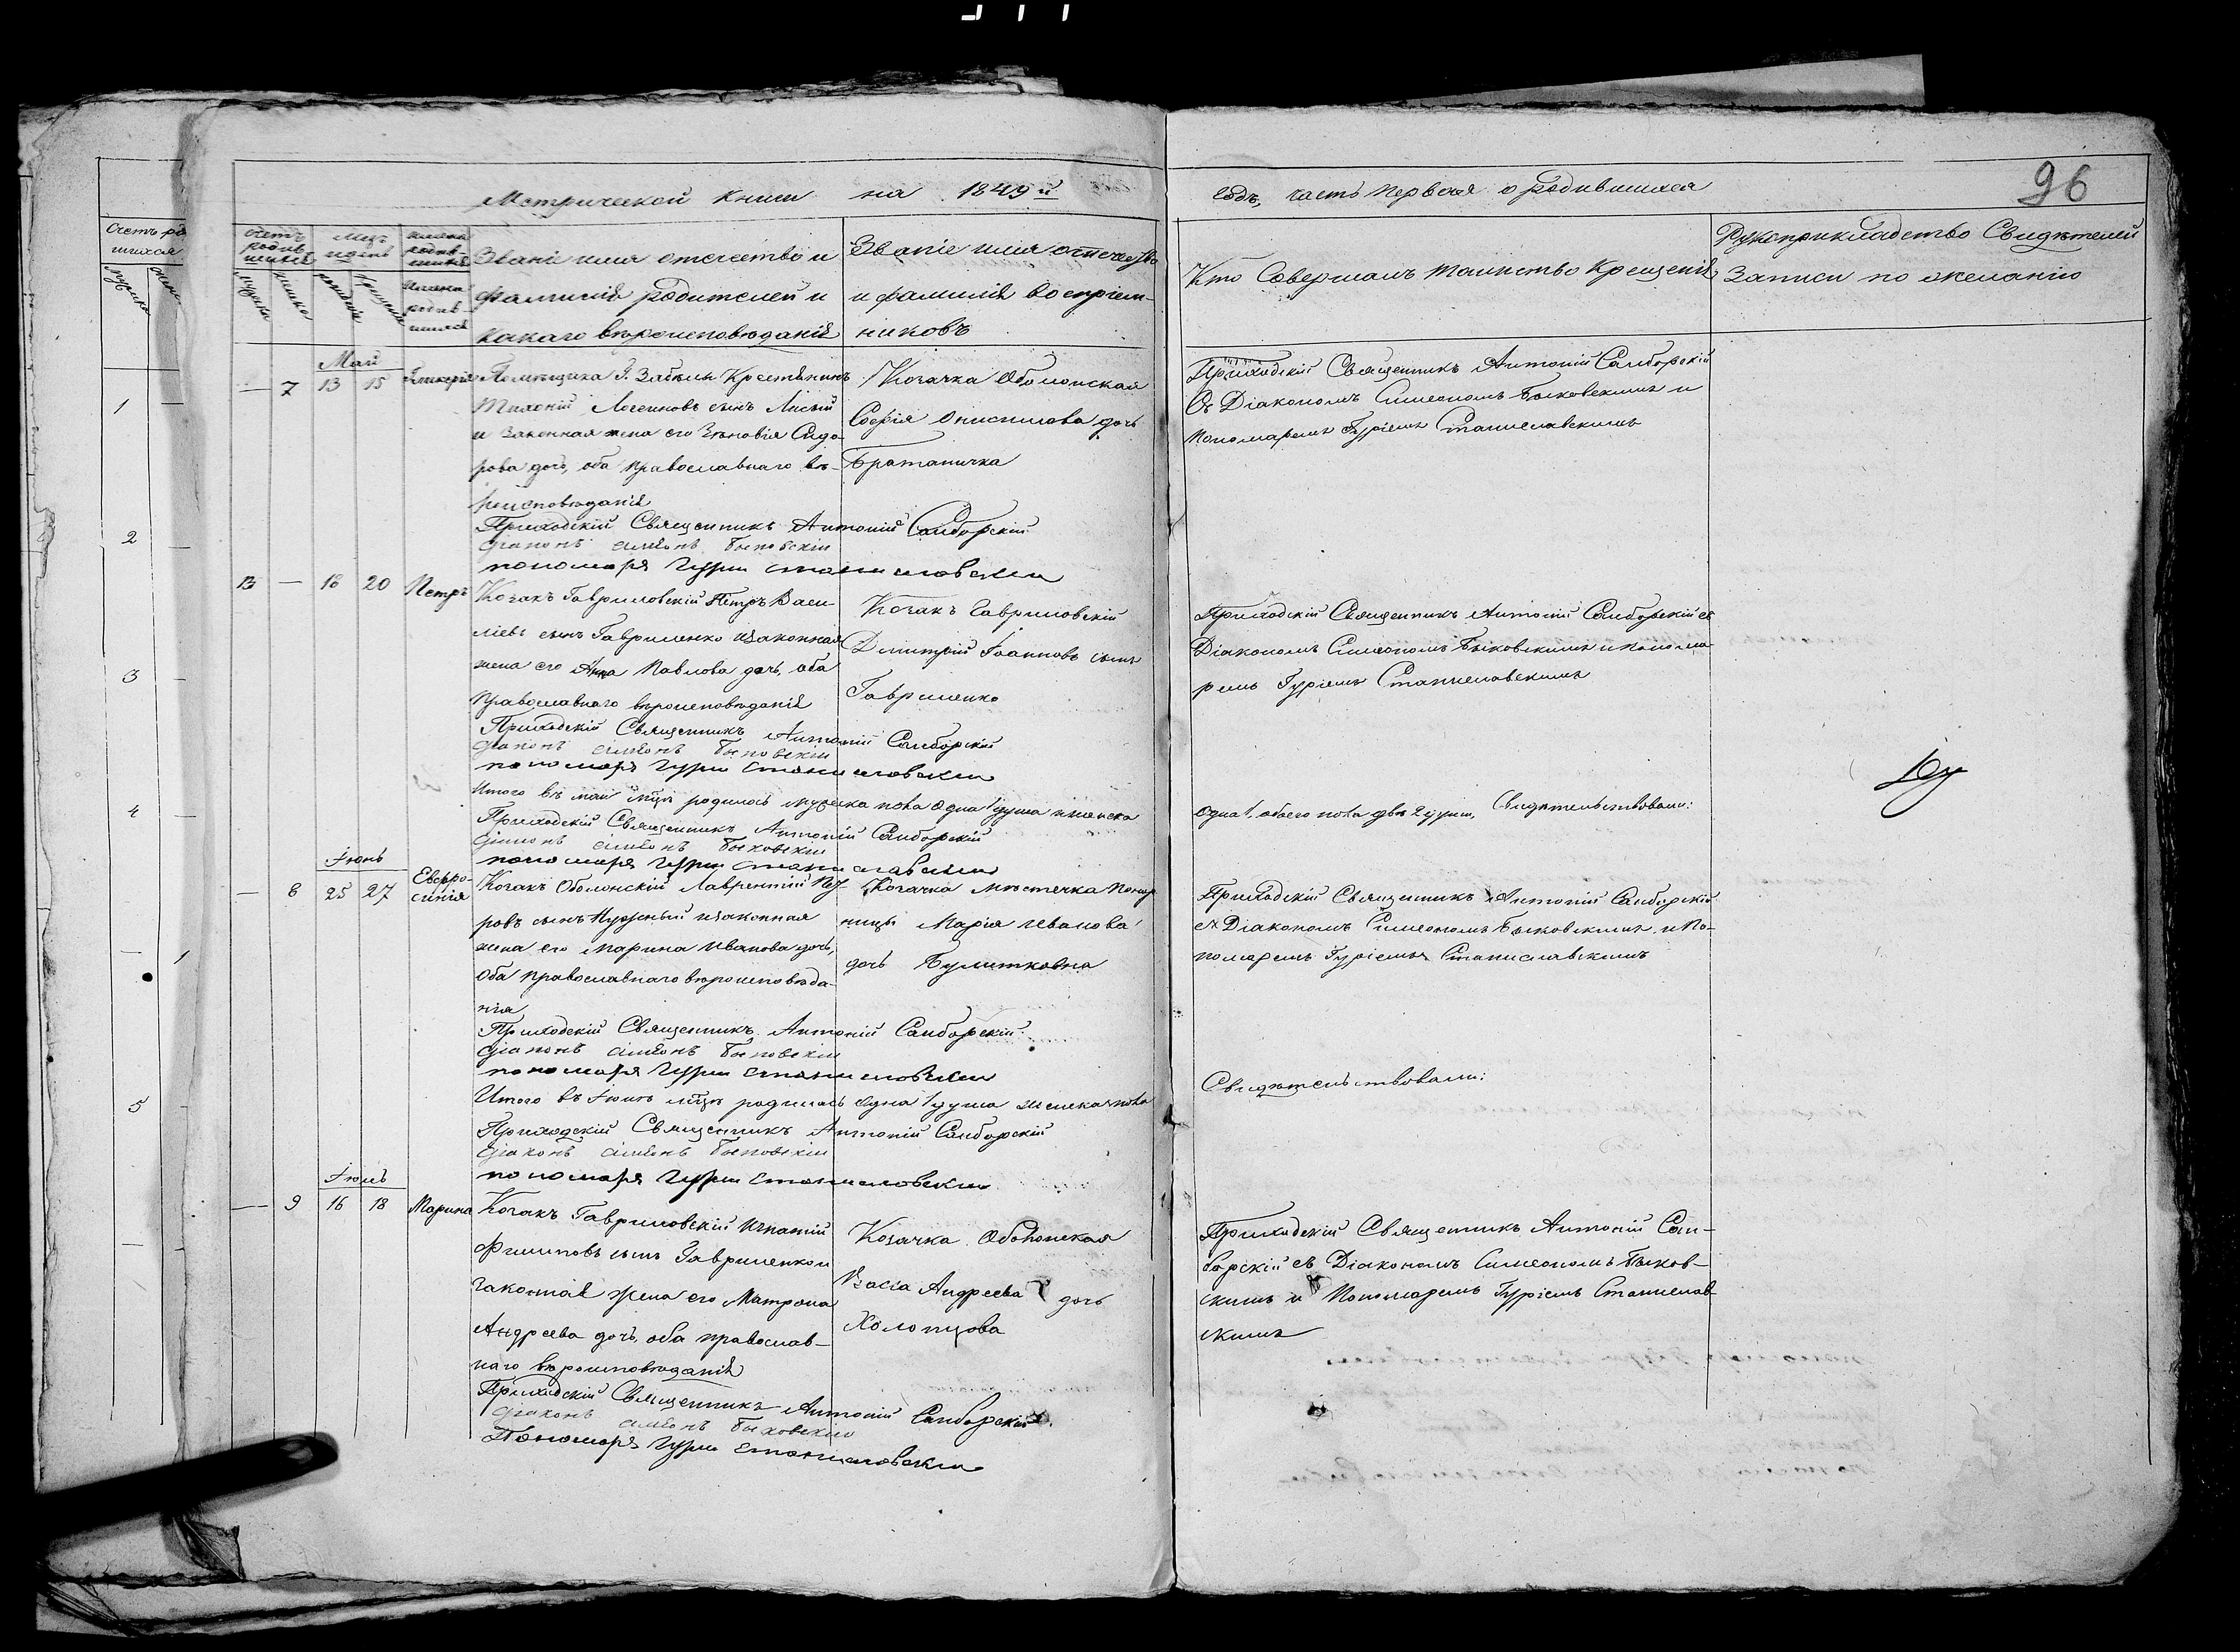 Метрической книги на 1849й
годъ, часть первая о родившихся
96
Счетъ родив-
шихся
мужеска
женска
Мсцъ и день
рождения
крещения
Имена родив-
шихся
Звание имя отечество и
фамилия родителей и
какаго вероисповеданія
Званіе имя отечество
и фамилія воспріем-
никовъ
Кто Совершалъ таинство Крещенія
Рукоприкладство Свидетелей
Записи по желанію
Май
— 7 13 15 Гликерія
Помещика Г. Забелы Крестянинъ
сынъ Лисый
и Законная жена его Зеновія Сидо-
рова дочь, оба православнаго ве-
роисповеданія
Козачка Оболонская
Софія дочь
Братаничка
Приходскій Священникъ Антоній Самборскій
Съ Діакономъ Симеономъ Быковскимъ и
Пономаремъ Гуріемъ Станиславскимъ
Приходскій Священникъ Антоній Самборскій
діаконъ симеонъ Быковскій
пономаръ Гурій Станиславскій
13 — 18 20 Петръ
Козакъ Гавриловскій Петръ Васи-
ліевъ сынъ Гавриленко изаконная
жена его Анна Павлова дочь, оба
Православнаго вероисповеданія
Козакъ Гавриловскій
Дмитрій Іоанновъ сынъ
Гавриленко
Приходскій Священникъ Антоній Самборскій съ
Діакономъ Симеономъ Быковскимъ и понома-
ремъ Гуріемъ Станиславскимъ
Приходскій Священникъ Антоній Самборскій
діаконъ симеонъ Быковскій
пономаръ Гурій Станиславскій
Итого въ маи мцы родилось мужеска пола одна 1 душа и женска
одна 1, обоего пола две 2 души, Свидетельствовали:
Приходскій Священникъ Антоній Самборскій
діаконъ симеонъ Быковскій
пономаръ Гурій Станиславскій
Іюнь
— 8 25 27 Евфро-
синія
Козакъ Оболонскій Лаврентій
ровъ сынъ Нужный изаконная
жена его Марина Иванова дочь,
Оба православнаго вероисповеда-
нія
Козачка местечка Понор-
ницы Марія Иванова
дочь
Приходскій Священникъ Антоній Самборскій
съ Діакономъ Симеономъ Быковскимъ и По-
номаремъ Гуріемъ Станиславскимъ
Приходскій Священникъ Антоній Самборскій
діаконъ симеонъ Быковскій
пономаръ Гурій Станиславскій
Итого въ Іюнь мцы родилось одна 1 душа женска пола
Свидетельствовали:
Приходскій Священникъ Антоній Самборскій
діаконъ симеонъ Быковскій
пономаръ Гурій Станиславскій
Іюль
— 9 16 18 Марина
Козакъ Гавриловскій Игнатій
Филиповъ сынъ Гавриленко и
законная жена его Матрона
Андреева дочь, оба православ-
наго вероисповеданія
Козачка Оболонская
Васса Андреева дочь
Холопцова
Приходскій Священникъ Антоній Сам-
борскій съ Діакономъ Симеономъ Быков-
скимъ и Пономаремъ Гуріемъ Станислав-
скимъ
Приходскій Священникъ Антоній Самборскій
діаконъ симеонъ Быковскій
Пономаръ Гурій Станиславскій
Счетъ
шихся
1
2
3
4
1
5